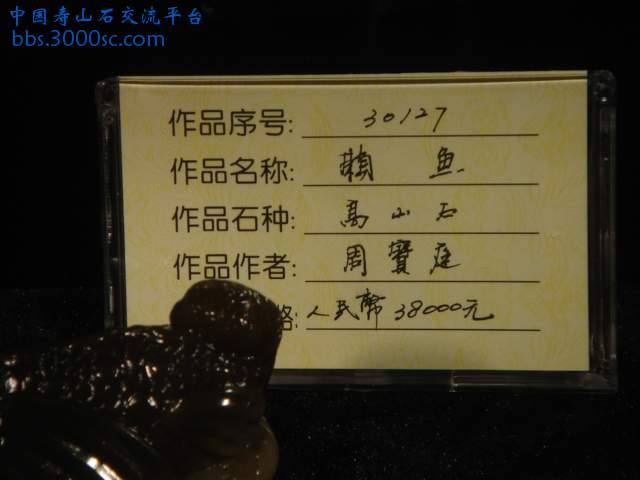 中国寿山石交流平台
bbs.3000sc.com
作品序号: 30127
作品名称: 鱼
作品石种: 高山石
作品作者: 周寶庭
格: 人民币 38000元